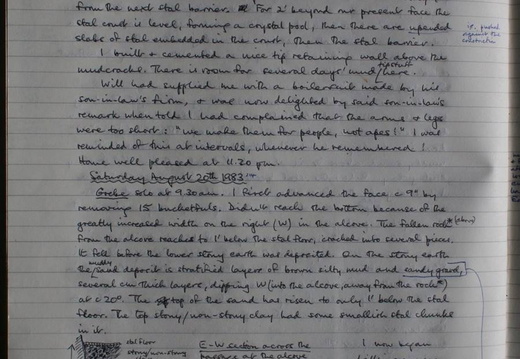 from the next stal barrier. For 2' beyond our present face the
stal court is level, forming a crystal pool, then there are upended
slabs of stal embedded in the court, then the stal barrier.
i.e. pushed
against the
constriction
I built & cemented a nice tip retaining wall above the
mudcracks. There is room for several days' mud/tipstuff here.
Will had supplied me with a boilersuit made by his
son-in-law's firm, & was now delighted by said son-in-law's
remark when told I had complained that the arms & legs
were too short: "we make them for people, not apes!" I was
reminded of this at intervals, whenever he remembered!
Home well pleased at 11.20 pm.
Saturday August 20th 1983
Grebe solo at 9.30am. I first advanced the face c 9" by
removing 15 bucketfuls. Didn't reach the bottom because of the
greatly increased width on the right (W) in the alcove. The fallen rock* (above)
from the alcove reached to 1' below the stal floor, cracked into several pieces.
It fell before the lower stony earth was deposited. On the stony earth
the muddy/sand deposit is stratified layers of brown silty mud and sandy gravel,
several cm thick layers, dipping W (into the alcove, away from the rock*)
at c 20°. The top of the sand has risen to only 1" below the stal
floor. The top stony/non-stony clay had some smallish stal chunks
in it.
stal floor
stony/non-stony
E-W section across the
passage at the alcove
I now began